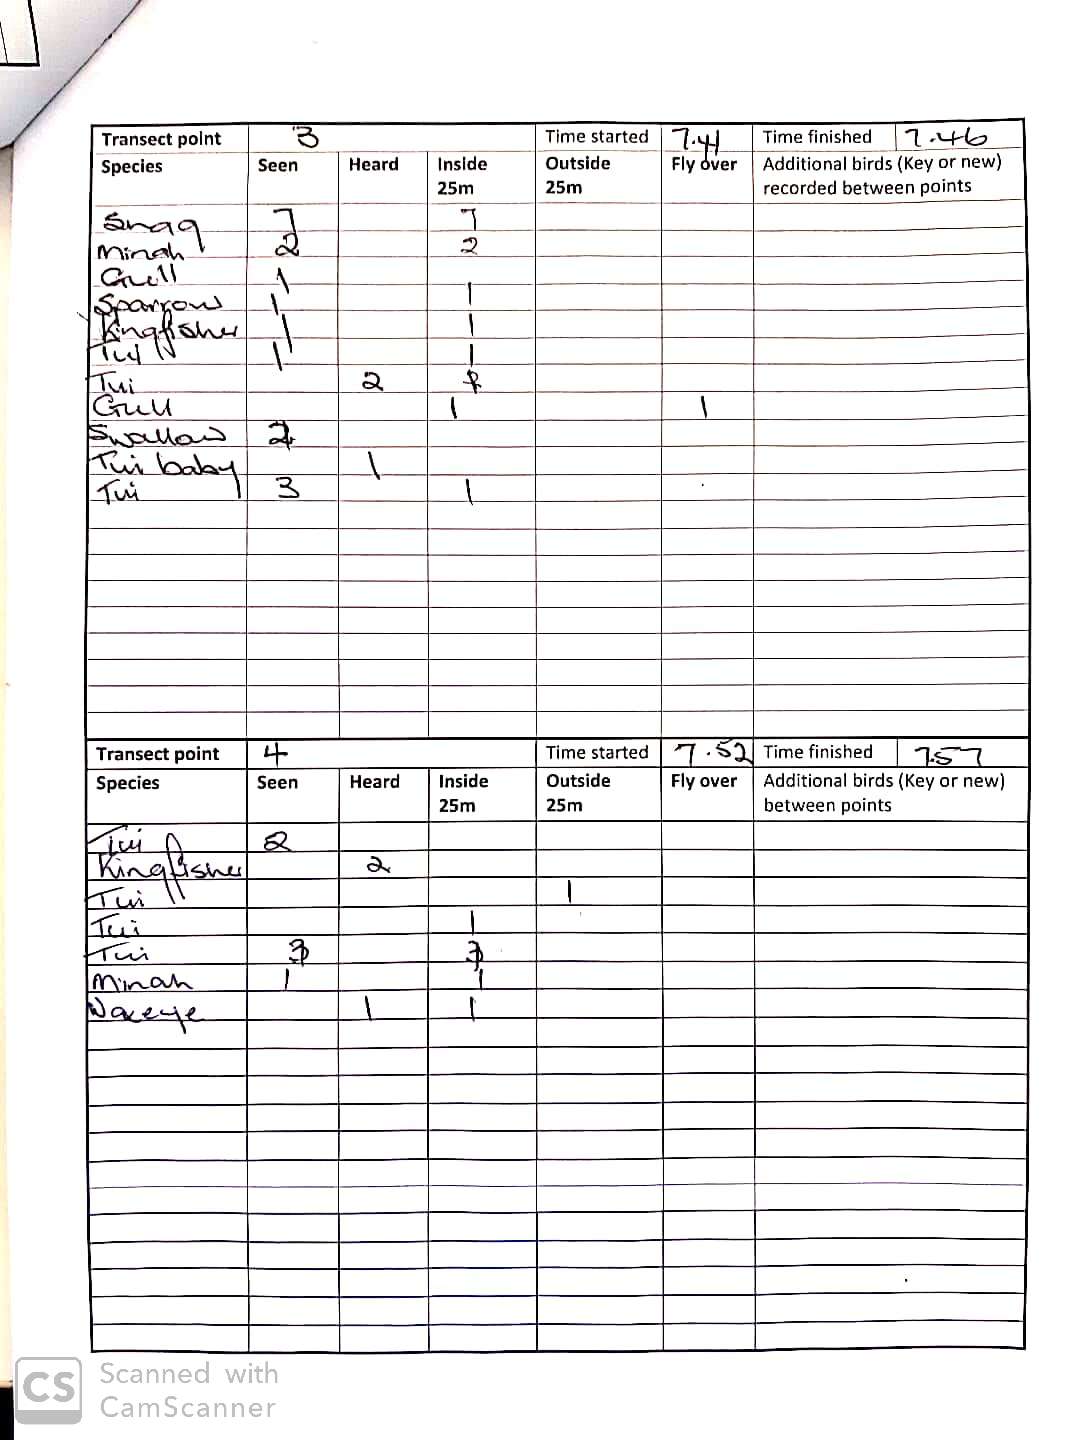 Transect point 3 Time started 7.41 Time finished 7.46
Species Seen Heard Inside 25m Outside 25m Fly over Additional birds (Key or new) recorded between points
Shag 7 7
Minah 2 2
Gull 1
Sparrow 1 1
Kingfisher 1 1
Tui 1 1
Tui 2
Gull 1 1
Swallow 2
Tui baby 1
Tui 3 1
Transect point 4 Time started 7.52 Time finished 7.57
Species Seen Heard Inside 25m Outside 25m Fly over Additional birds (Key or new) between points
Tui 2
Kingfisher 2
Tui 1
Tui 1
Tui 3 3
Minah 1 1
Waxeye 1 1
CS Scanned with
CamScanner